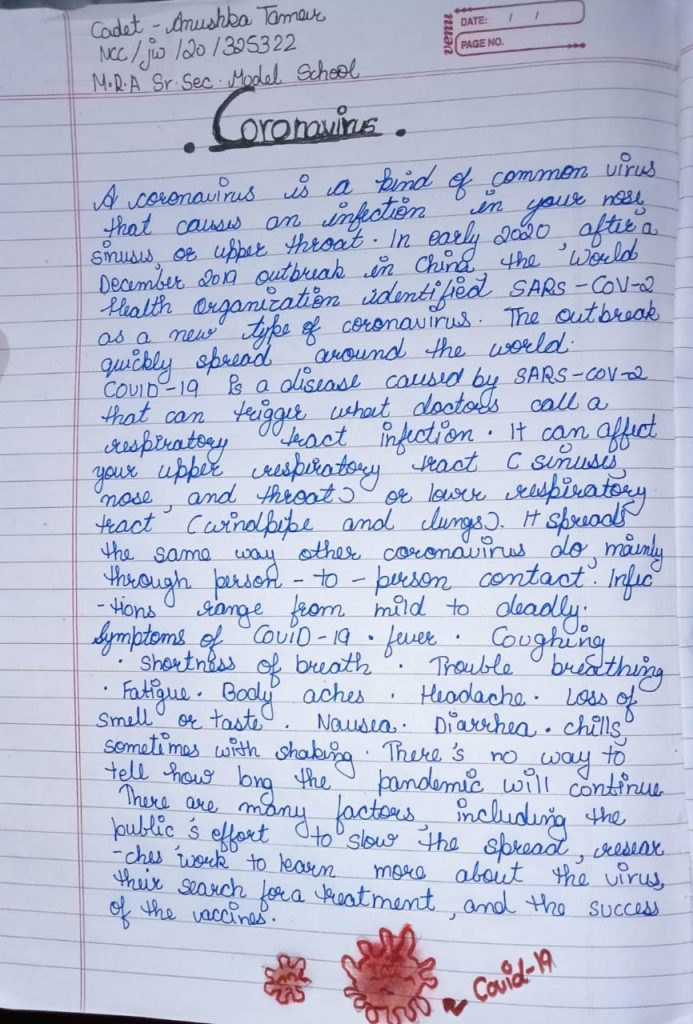 Cadet - Anushka Tamar
NCC/JW/20/325322
M.R.A Sr. Sec. Model School
venu
DATE: / /
PAGE NO.
. Coronavirus .
A coronavirus is a kind of common virus
that causes an infection in your nose,
sinuses, or upper throat. In early 2020, after a
December 2019 outbreak in China, the World
Health Organization identified SARS-COV-2
as a new type of coronavirus. The outbreak
quickly spread around the world.
COVID-19 is a disease caused by SARS-COV-2
that can trigger what doctors call a
respiratory tract infection. It can affect
your upper respiratory tract (sinuses,
nose, and throat) or lower respiratory
tract (windpipe and lungs). It spreads
the same way other coronavirus do, mainly
through person-to-person contact. Infec
-tions range from mild to deadly.
Symptoms of COVID-19 . fever . Coughing
. Shortness of breath . Trouble breathing
. Fatigue . Body aches . Headache . Loss of
smell or taste . Nausea . Diarrhea . chills,
sometimes with shaking. There's no way to
tell how long the pandemic will continue
There are many factors, including the
public's effort to slow the spread, resear
-ches work to learn more about the virus,
their search for a treatment, and the success
of the vaccines.
Covid-19